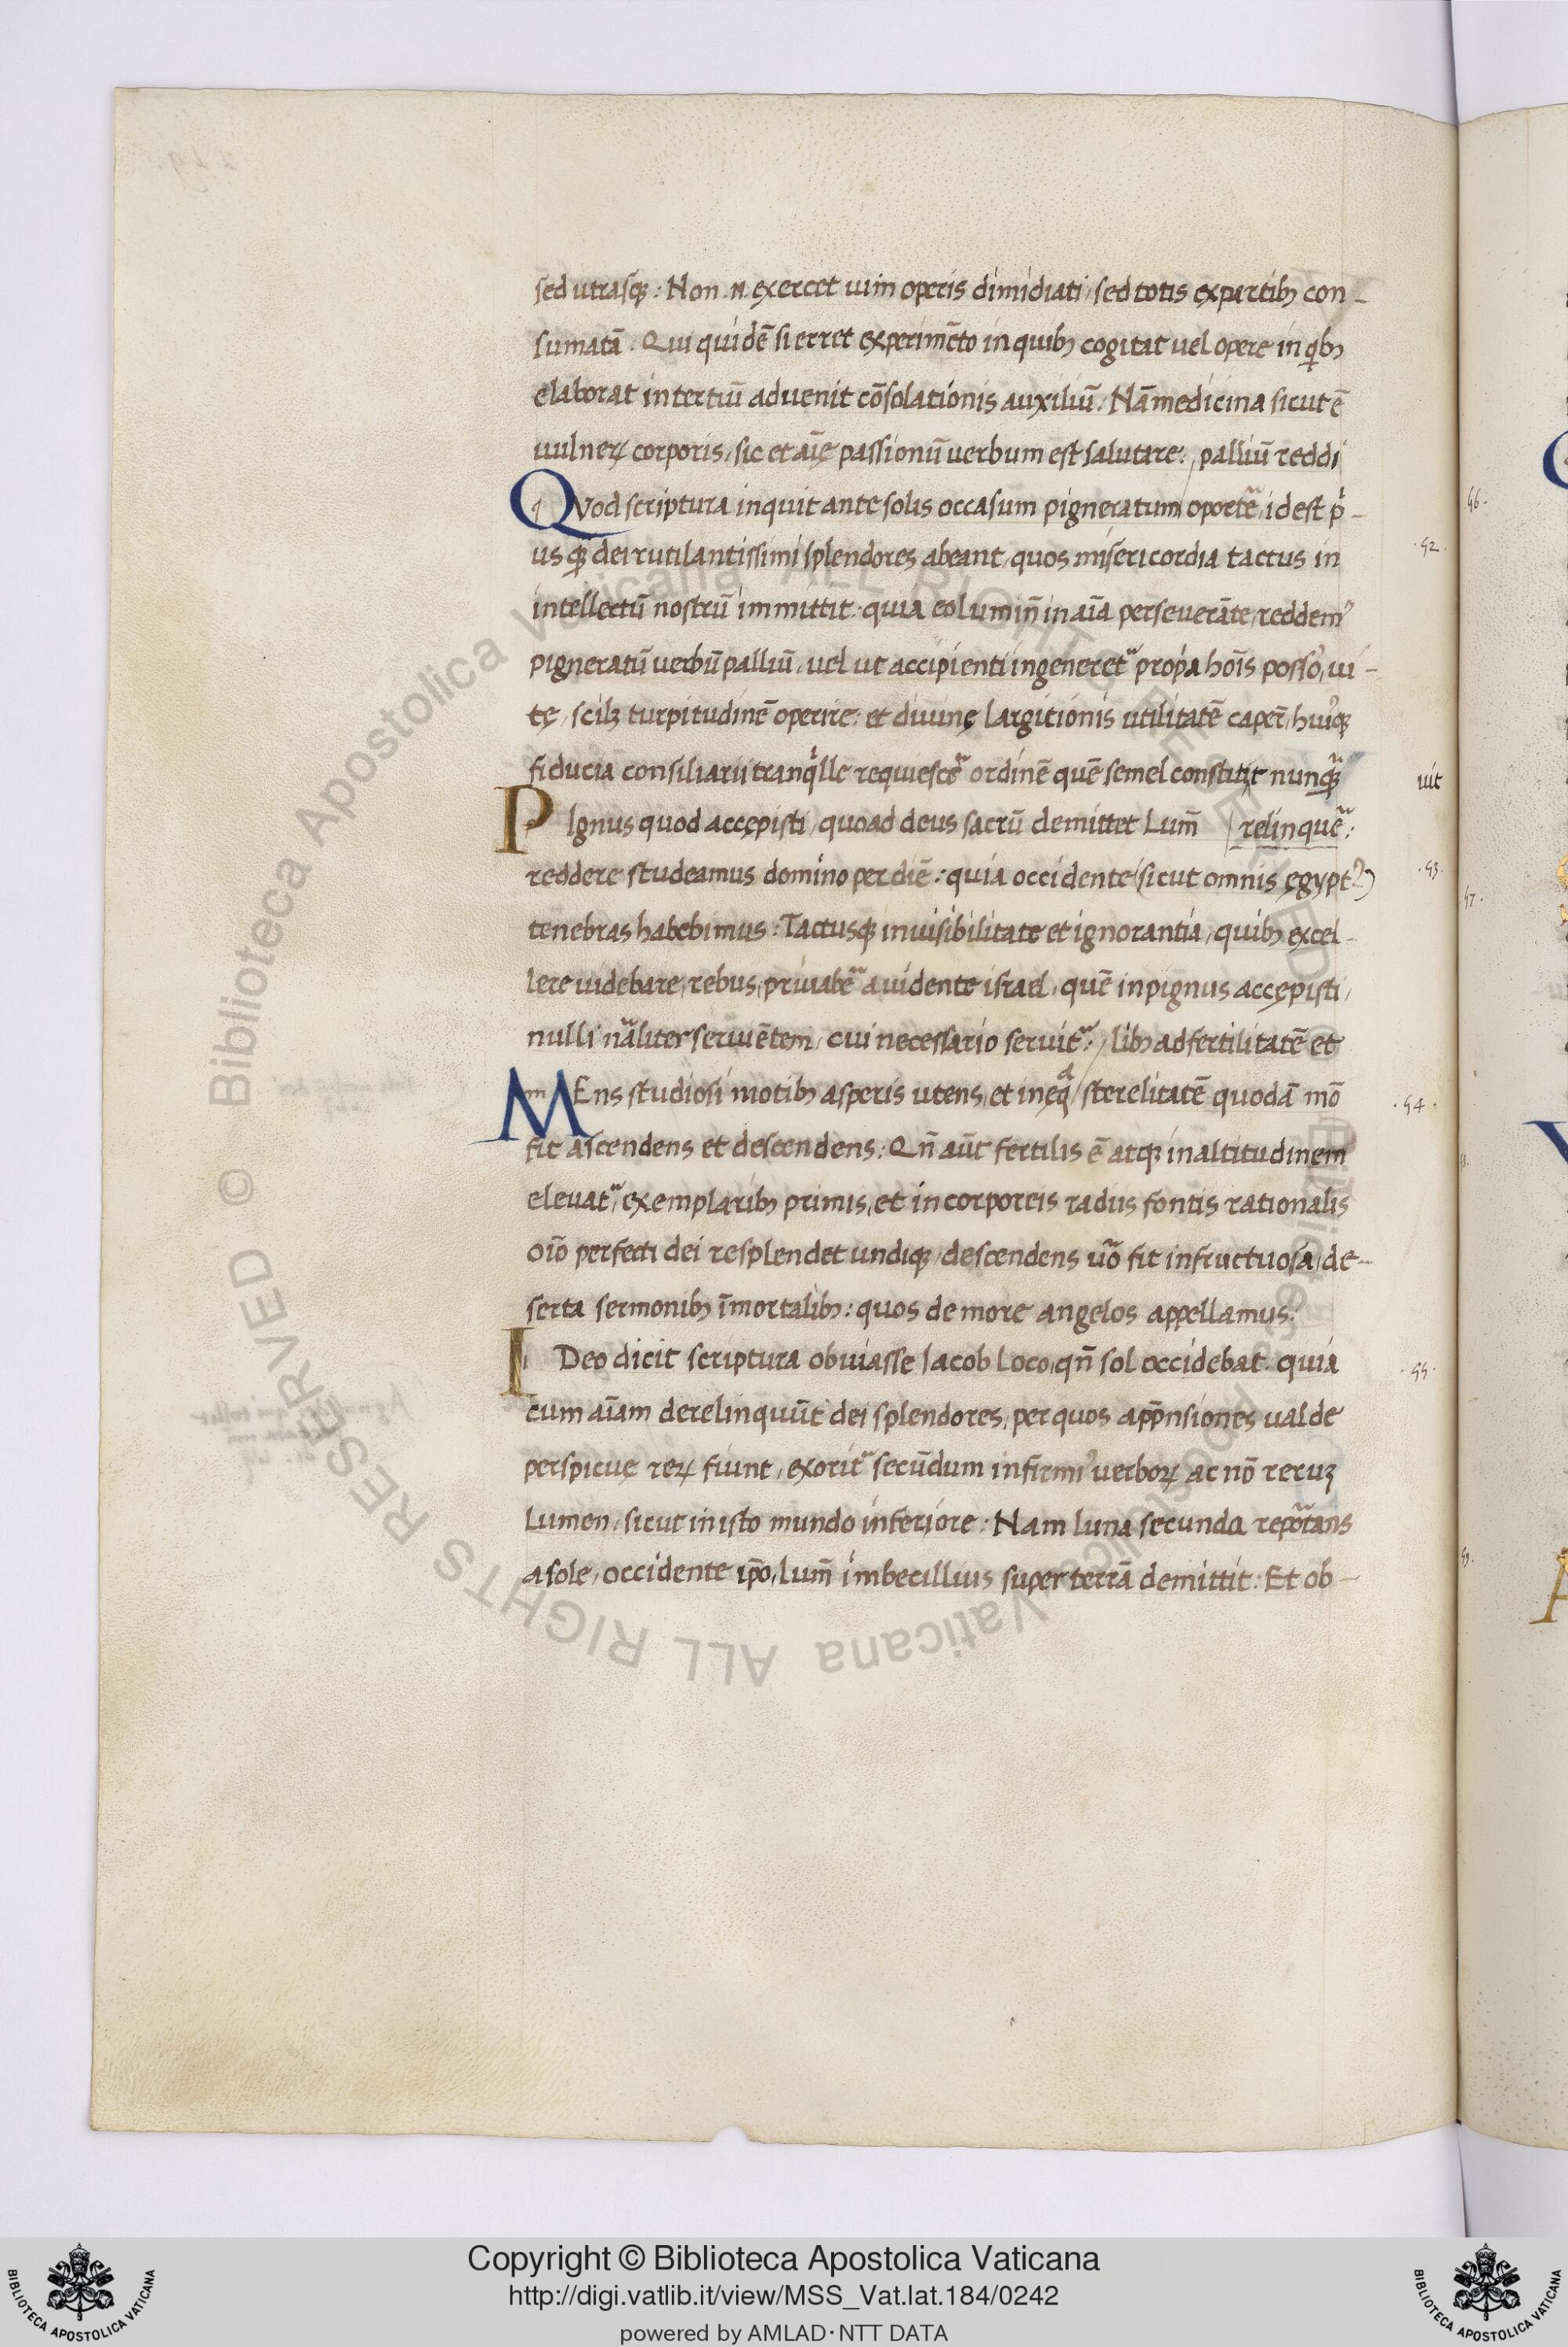 sed utrasqȝ : Non .n. exercet uim operis dimidiati, sed totis ex partibȝ con-
sumatā . Qui quidē si erret experimēto in quibȝ cogitat uel opere in qͥbȝ
elaborat in tertiū aduenit cōsolationis auxiliū. Nā medicina sicut ē
uulneꝝ corporis, sic et aīę passionū verbum est salutare : / palliū reddi
QVod scriptura inquit ante solis occasum pigneratum / oportē, id est pͥ-
us qȝ dei rutilantissimi splendores abeant, quos misericordia tactus in
intellectū nostrū immittit : quia eo lumiñ in aīa perseverāte, reddemꝰ
pigneratū verbū palliū, uel ut accipienti ingeneretʳ propͥa hoīs possō, ui-
tę, scilȝ turpitudinē operire : et divinę largitionis utilitatē caper̄, huiꝰqȝ
fiducia consiliarii tranqͥlle requiescē ordinē quē semel constituit nunqȝ
uit
PIgnus quod accępisti, quoad deus sacrū demittet Lum̄ / relinquē :
reddere studeamus domino per diē : quia occidente (sicut omnis ęgyptꝰ)
tenebras habebimus : Tactusqȝ invisibilitate et ignorantia, quibȝ excel-
lere videbare, rebus, privabē a vidente israel, quē in pignus accępisti,
nulli nāliter serviētem, cui necessario servitʳ : / libȝ ad fertilitatē et
MEns studiosi motibȝ asperis utens, et inęqͣ / sterelitatē quodā mō
fit ascendens et descendens : Qn̄ aūt fertilis ē atqȝ in altitudinem
elevatʳ, exemplaribȝ primis, et incorporeis radiis fontis rationalis
oīo perfecti dei resplendet undiqȝ, descendens ūo fit infructuosa, de-
serta sermonibȝ īmortalibȝ : quos de more angelos appellamus :
IDeo dicit scriptura obviasse Iacob Loco, qn̄ sol occidebat . quia
cum aīam derelinquūt dei splendores, per quos app̄nsiones valde
perspicuę reꝝ fiunt, exoritʳ secūdum infirmiꝰ verboꝝ ac nō reruȝ
Lumen, sicut in isto mundo inferiore : Nam luna secunda repōtans
a sole, occidente ip̄o, lum̄ imbecillius super terrā demittit : Et ob-
.52.
.53.
.54.
.55.
56.
57.
Copyright © Biblioteca Apostolica Vaticana
http://digi.vatlib.it/view/MSS_Vat.lat.184/0242
powered by AMLAD·NTT DATA
BIBLIOTECA APOSTOLICA VATICANA
BIBLIOTECA APOSTOLICA VATICANA
© Biblioteca Apostolica Vaticana ALL RIGHTS RESERVED
© Biblioteca Apostolica Vaticana ALL RIGHTS RESERVED